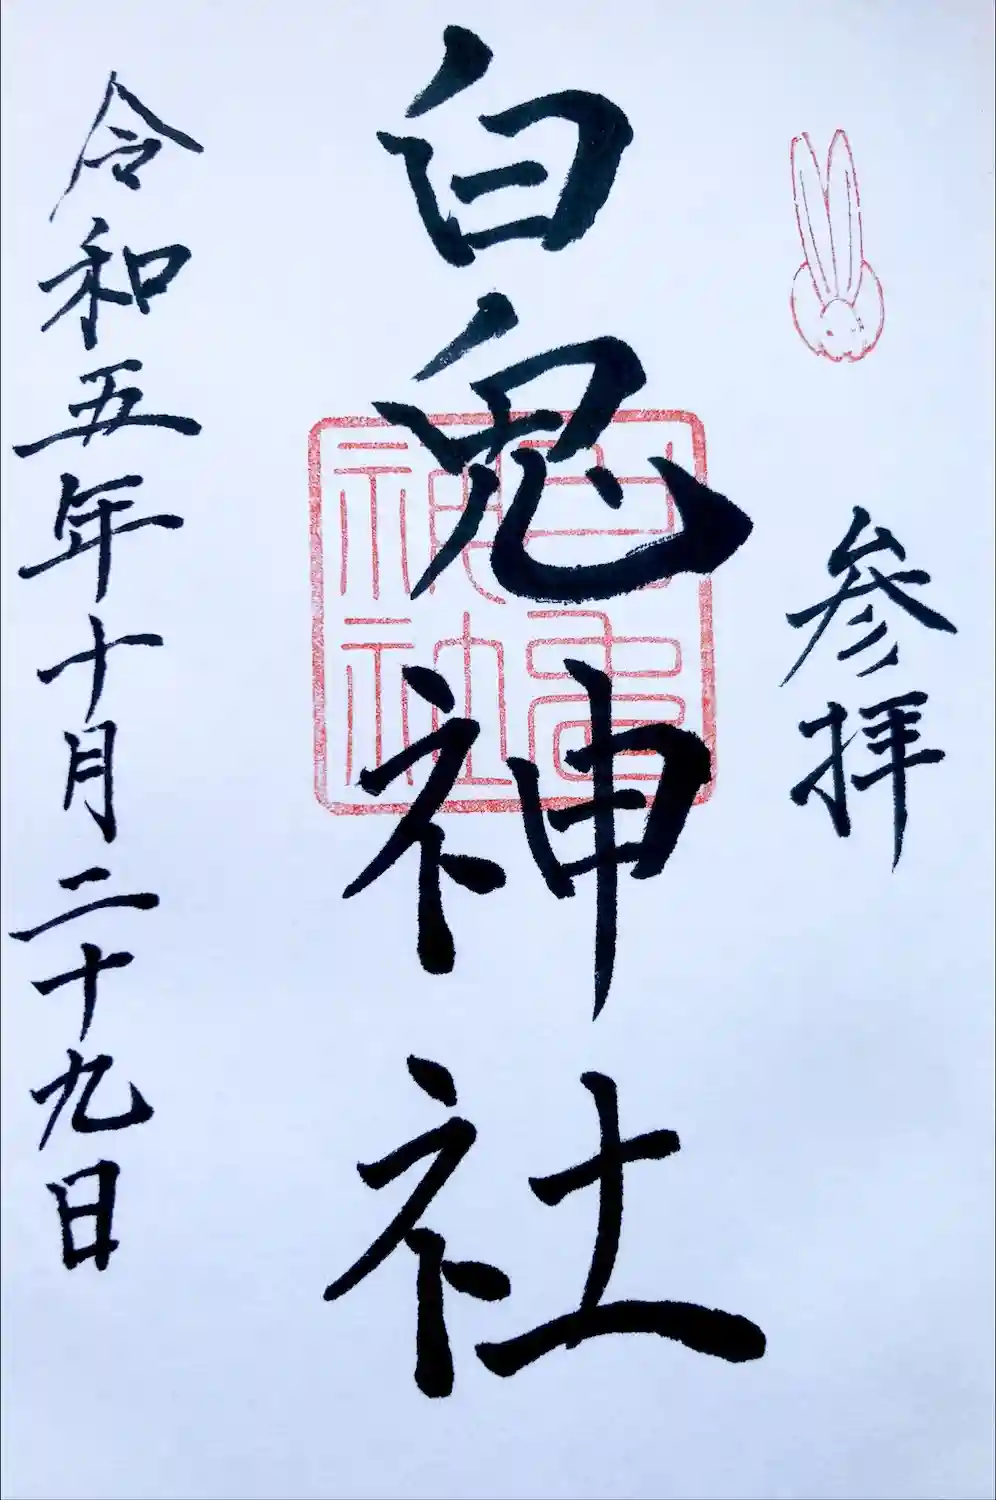 参拝
白兎神社
令和五年十月二十九日